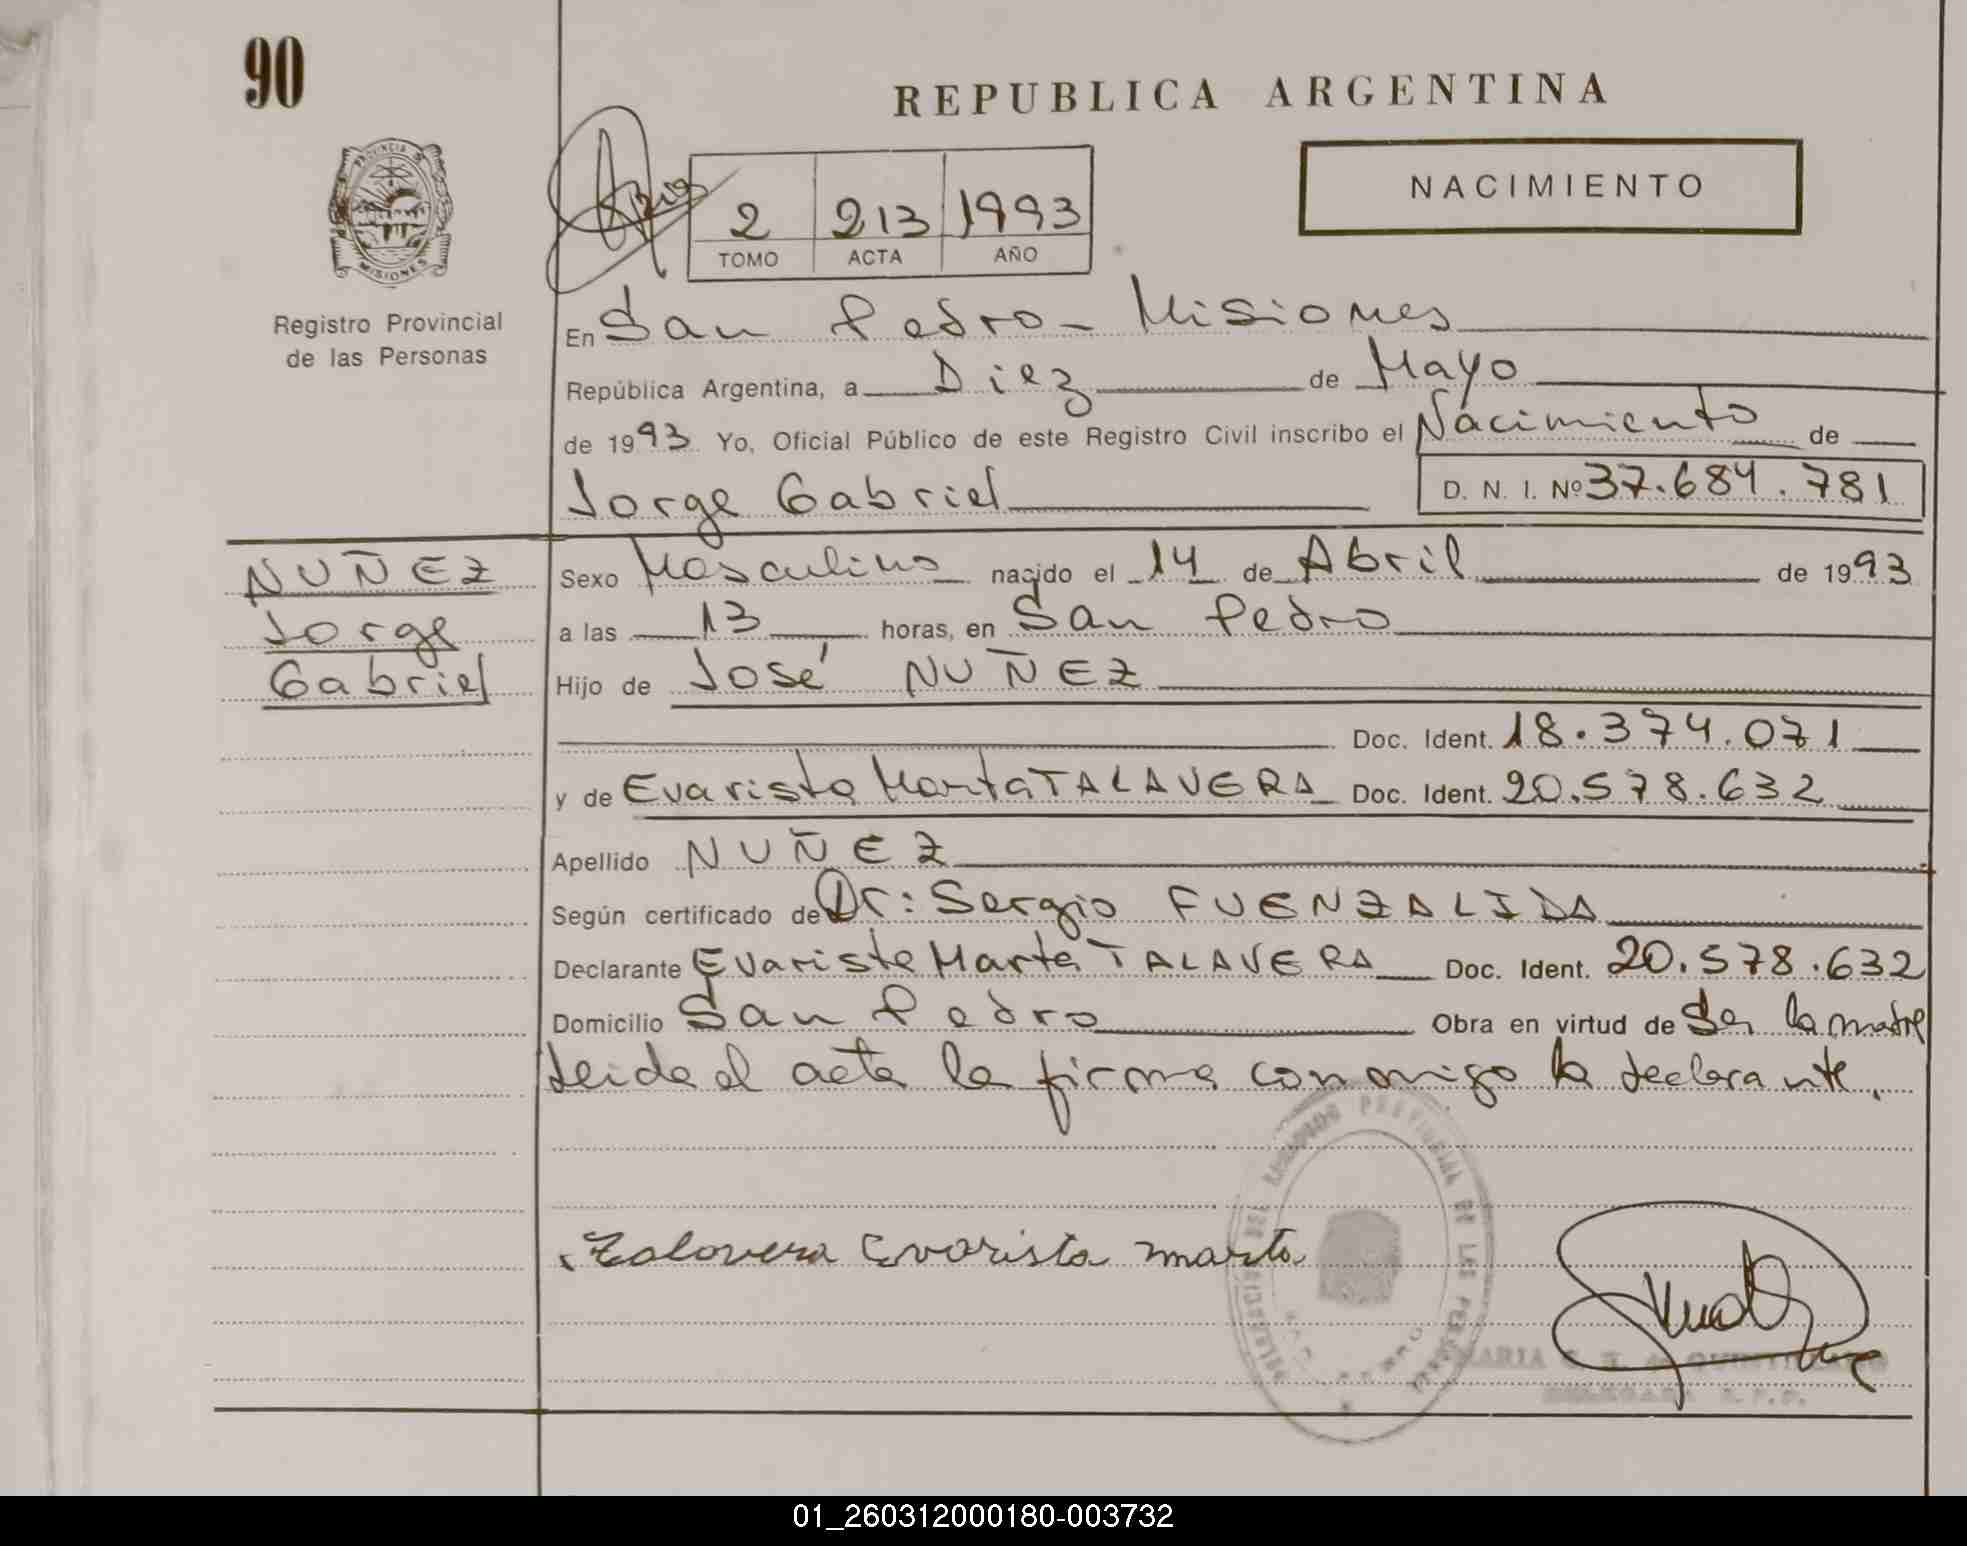 90
REPUBLICA ARGENTINA
PROVINCIA
MISIONES
Registro Provincial
de las Personas
2 213 1993
TOMO ACTA AÑO
NACIMIENTO
En San Pedro - Misiones
República Argentina, a Diez de Mayo
de 1993 Yo, Oficial Público de este Registro Civil inscribo el Nacimiento de
Jorge Gabriel D. N. I. Nº 37.684.781
NUÑEZ
Jorge
Gabriel
Sexo Masculino nacido el 14 de Abril de 1993
a las 13 horas, en San Pedro
Hijo de José NUÑEZ
Doc. Ident. 18.374.071
y de Evarista Marta TALAVERA Doc. Ident. 20.578.632
Apellido NUÑEZ
Según certificado de Dr: Sergio FUENZALIDA
Declarante Evarista Marta TALAVERA Doc. Ident. 20.578.632
Domicilio San Pedro Obra en virtud de Ser la madre
Leida el acta la firma conmigo la declarante.
Talovera Evarista marta
REGISTRO PROVINCIAL DE LAS PERSONAS
MARIA
01_260312000180-003732